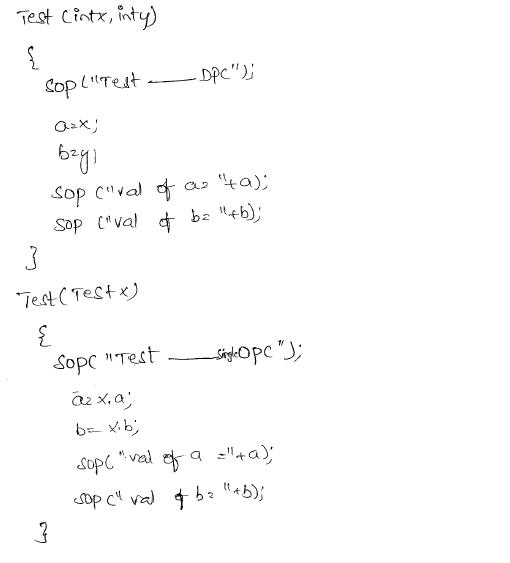 Test (int x, int y)
{
sop("Test ——— DPC");
a=x;
b=y;
sop ("val of a= "+a);
sop ("val of b= "+b);
}
Test(Test x)
{
sop( "Test ——— single OPC");
a= x.a;
b= x.b;
sop( "val of a ="+a);
sop (" val of b= "+b);
}